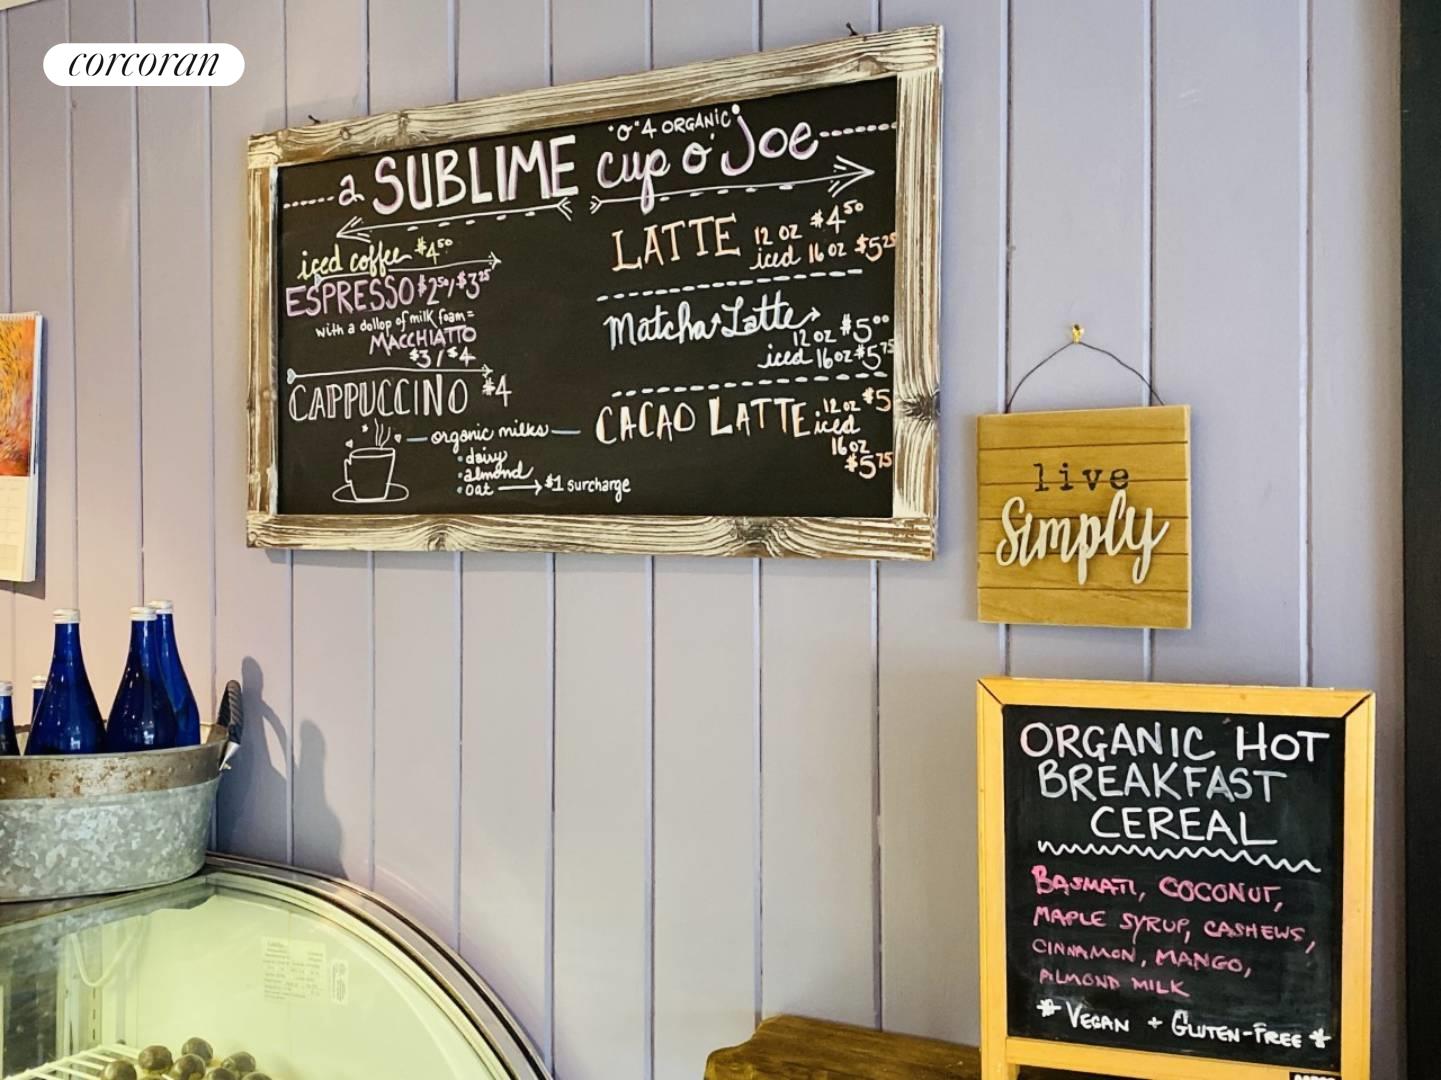 corcoran
a SUBLIME cup o' Joe
"O" 4 ORGANIC
iced coffee $4⁵⁰
ESPRESSO $2⁵⁰/$3²⁵
with a dollop of milk foam =
MACCHIATO
$3 / $4
CAPPUCCINO $4
organic milks
• dairy
• almond
• oat → $1 surcharge
LATTE 12 oz $4⁵⁰
iced 16 oz $5²⁵
Matcha Latte
12 oz $5⁰⁰
iced 16 oz $5⁷⁵
CACAO LATTE 12 oz $5
iced
16 oz
$5⁷⁵
live
Simply
ORGANIC HOT
BREAKFAST
CEREAL
BASMATI, COCONUT,
MAPLE SYRUP, CASHEWS,
CINNAMON, MANGO,
ALMOND MILK
* VEGAN + GLUTEN-FREE *